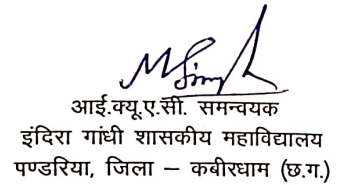 आई.क्यू.ए.सी. समन्वयक
इंदिरा गांधी शासकीय महाविद्यालय
पण्डरिया, जिला – कबीरधाम (छ.ग.)